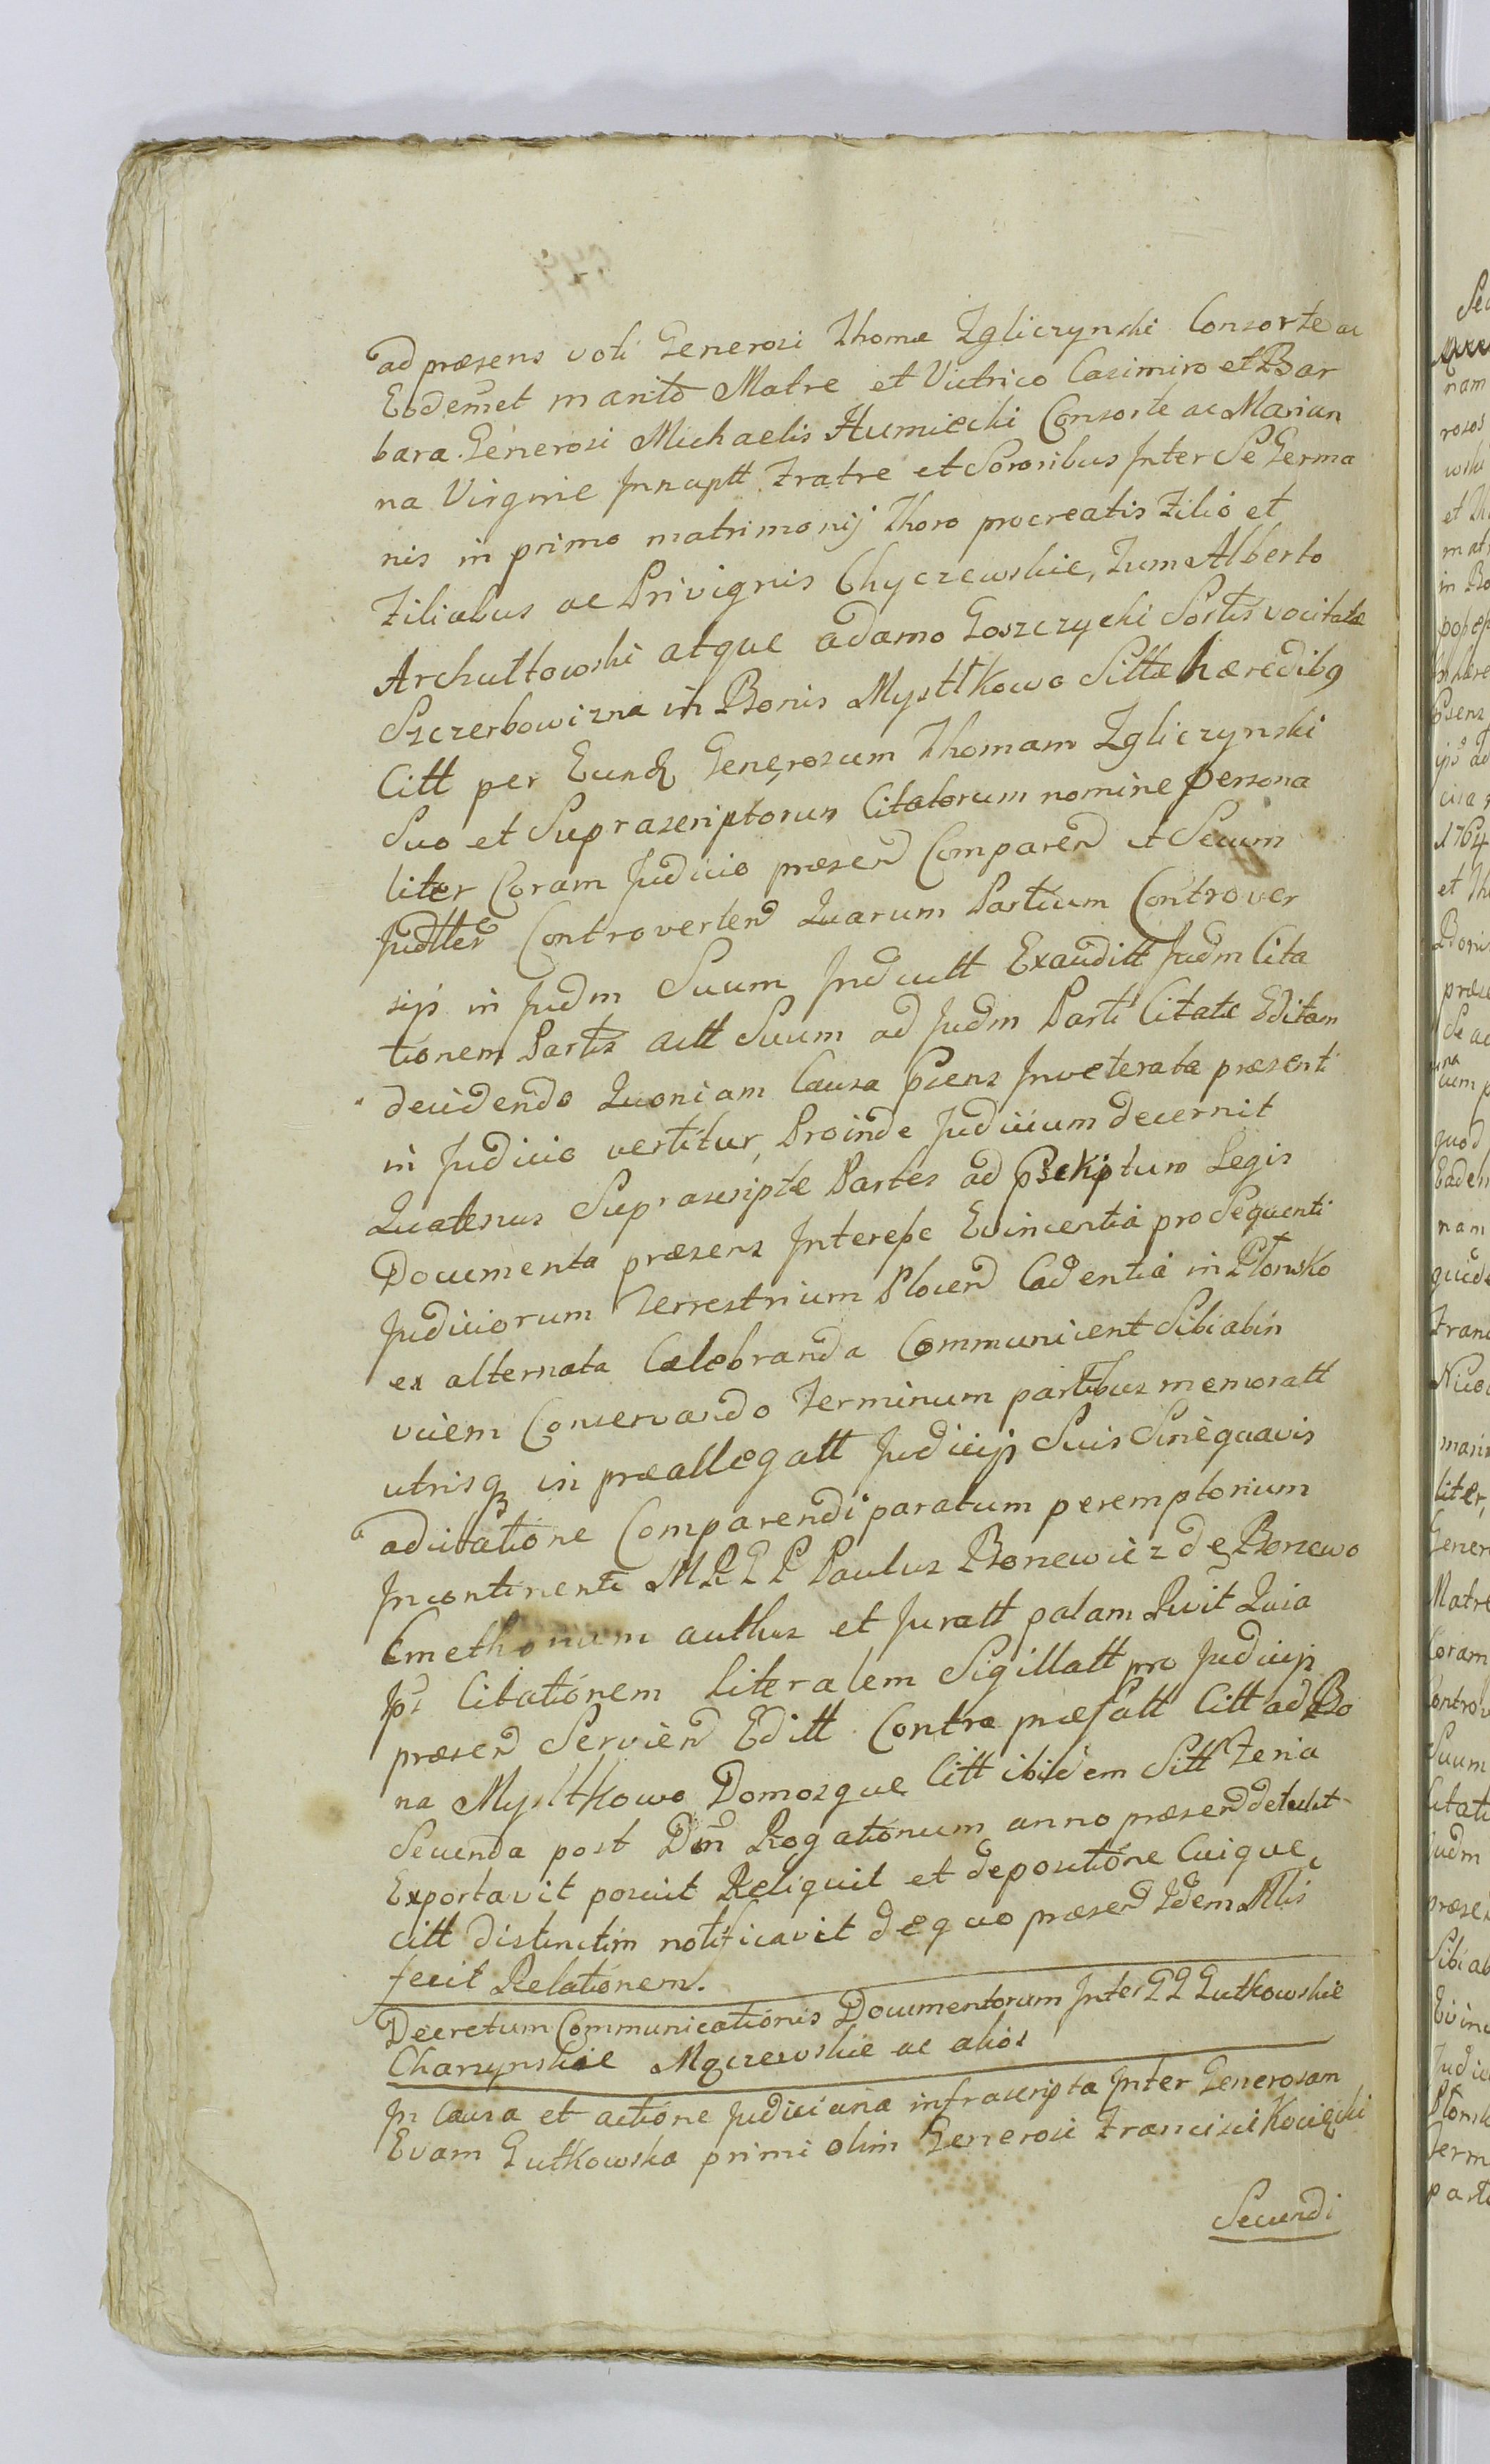 ad præsens voti Generosi Thomæ Zgliczynski Consorte ac
Eodemet marito Matre et Vitrico Casimiro et Bar
bara Generosi Michaelis Humiecki Consorte ac Marian
na Virgine Innuptt Fratre et Sororibus Inter Se Germa
nis in primo matrimonij Thoro procreatis Filio et
Filiabus ac Privignis Chyczewskie, Tum Alberto
Archuttowski atque adamo Goszczycki Sortis vocitatæ
Szczerbowizna in Bonis Mysttkowo Sittæ hæredibg
Citt per Eund Generosum Thomam Zgliczynski
Suo et Suprascriptorum Citatorum nomine persona
liter Coram Judicio præsen Comparen et Secum
Judtter Controverten Quarum Partium Controver
sijs in Judm Suum Induett Exauditt Judm Cita
tionem Partis actt Suum ad Judm Parti Citatæ Editam
decidendo Quoniam Causa psens Inveterata præsenti
in Judicio vertitur, Proinde Judicium decernit
Quatenus Suprascriptæ Partes ad pscriptum Legis
Documenta præsens Interesse Evincentia pro Sequenti
Judiciorum Terrestrium Plocen Cadentia in Płonsko
ex alternata Celebranda Communicent Sibi abin
vicem Conservando Terminum partibus memoratt
utrisq in præallegatt Judicijs Suis Sine quavis
adcitatione Comparendi paratum peremptorium
Incontinenti MRGP Paulus Bonewicz de Bonewo
Cmethonum authus et Juratt palam Rvit Quia
Ipse Citationem literalem Sigillatt pro Judicijs
præsen Servien Editt Contra præfatt Citt ad Bo
na Mysttkowo Domosque Citt ibidem Sitt Feria
Secunda post Dm Rogationum anno præsen detulit
Exportavit posuit Reliquit et depositione Cuique
citt distinctim notificavit de quo præsen Idem Mlis
fecit Relationem.
Decretum Communicationis Documentorum Inter GG Gutkowskie
Charzynskie Mączewskie ac alios
In Causa et actione Judiciaria infrascripta Inter Generosam
Evam Gutkowska primi olim Generosi Francisci Kocięcki
Secundi